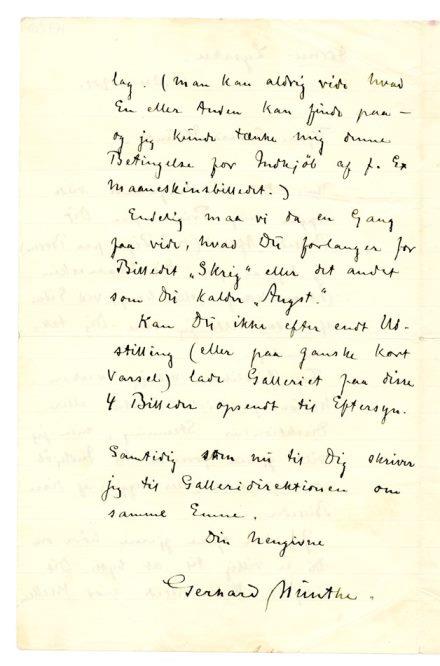 lag. (man kan aldrig vide hvad
En eller Anden kan finde paa –
og jeg kunde tænke mig denne
Betingelse for Indkjöb af f. Ex
Maaneskinsbilledet.)
Endelig maa vi da en Gang
faa vide, hvad Du forlanger for
Billedet „Skrig" eller det andet
som Du kalder „Angst."
Kan Du ikke efter endt Ud-
stilling (eller paa ganske kort
Varsel) lade Galleriet faa disse
4 Billeder opsendt til Eftersyn.
Samtidig som nu til Dig skriver
jeg til Galleridirektionen om
samme Emne.
Din hengivne
Gerhard Munthe.